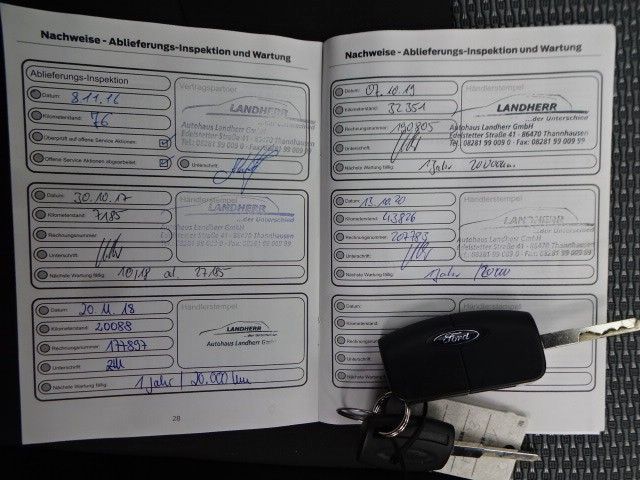 Nachweise - Ablieferungs-Inspektion und Wartung
Ablieferungs-Inspektion
Datum: 8.11.16
Kilometerstand: 76
Überprüft auf offene Service Aktionen:
Offene Service Aktionen abgearbeitet:
Vertragspartner
LANDHERR
...der Unterschied
Autohaus Landherr GmbH
Edelstetter Straße 41 · 86470 Thannhausen
Tel. 08281 99 009 0 · Fax: 08281 99 009 99
Unterschrift:
Datum: 30.10.17
Kilometerstand: 7185
Rechnungsnummer:
Unterschrift:
Nächste Wartung fällig: 10/18 27185
Händlerstempel
LANDHERR
...der Unterschied
Autohaus Landherr GmbH
Edelstetter Straße 41 - 86470 Thannhausen
08281 99 009 0 · Fax: 08281 99 009 99
Datum: 20.11.18
Kilometerstand: 20088
Rechnungsnummer: 177897
Unterschrift:
Nächste Wartung fällig: 1 Jahr / 20.000 km
Händlerstempel
LANDHERR
...der Unterschied
Autohaus Landherr GmbH
28
Nachweise - Ablieferungs-Inspektion und Wartung
Datum: 07.10.19
Kilometerstand: 32351
Rechnungsnummer: 190805
Unterschrift:
Nächste Wartung fällig: 1 Jahr 20000km
Händlerstempel
LANDHERR
...der Unterschied
Autohaus Landherr GmbH
Edelstetter Straße 41 · 86470 Thannhausen
Tel. 08281 99 009 0 · Fax: 08281 99 009 99
Datum: 13.10.20
Kilometerstand: 43826
Rechnungsnummer: 207783
Unterschrift:
Nächste Wartung fällig: 1 Jahr
Händlerstempel
LANDHERR
...der Unterschied
Autohaus Landherr GmbH
Edelstetter Straße 41 - 86470 Thannhausen
08281 99 009 0 · Fax: 08281 99 009 99
Datum:
Kilometerstand:
Rechnungsnummer:
Unterschrift:
Nächste Wartung
Händlerstempel
Ford